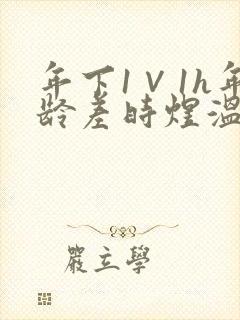 年下1V1h年
龄差时煜温
嚴立學